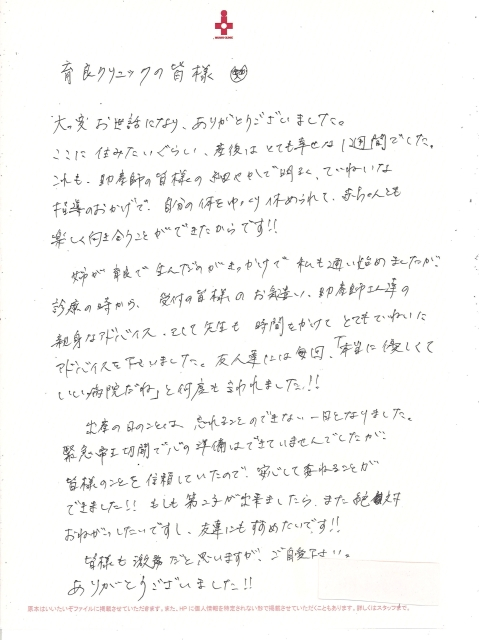 育良クリニックの皆様
大変お世話になり、ありがとうございました。
ここに住みたいぐらい、産後はとても幸せな1週間でした。
これも、助産師の皆様の細やかで明るく、ていねいな
指導のおかげで、自分の体をゆっくり休められて、赤ちゃんとも
楽しく向き合うことができたからです!!
姉が育良で生んだのがきっかけで私も通い始めましたが
診療の時から、受付の皆様のお気遣い、助産師さん達の
親身なアドバイス、そして先生も時間をかけてとてもていねいに
アドバイスを下さいました。友人達には毎回、「本当に優しくて
いい病院だね」と何度も言われました!!
出産の日のことは、忘れることのできない一日となりました。
緊急帝王切開で心の準備はできていませんでしたが、
皆様のことを信頼していたので、安心して委ねることが
できました!! もしも第二子が出来ましたら、また絶対
おねがいしたいですし、友達にもすすめたいです!!
皆様も激務だと思いますが、ご自愛下さい。
ありがとうございました!!
原本はいいたいそファイルに掲載させていただきます。また、HPに個人情報を特定されない形で掲載させていただくこともあります。詳しくはスタッフまで。